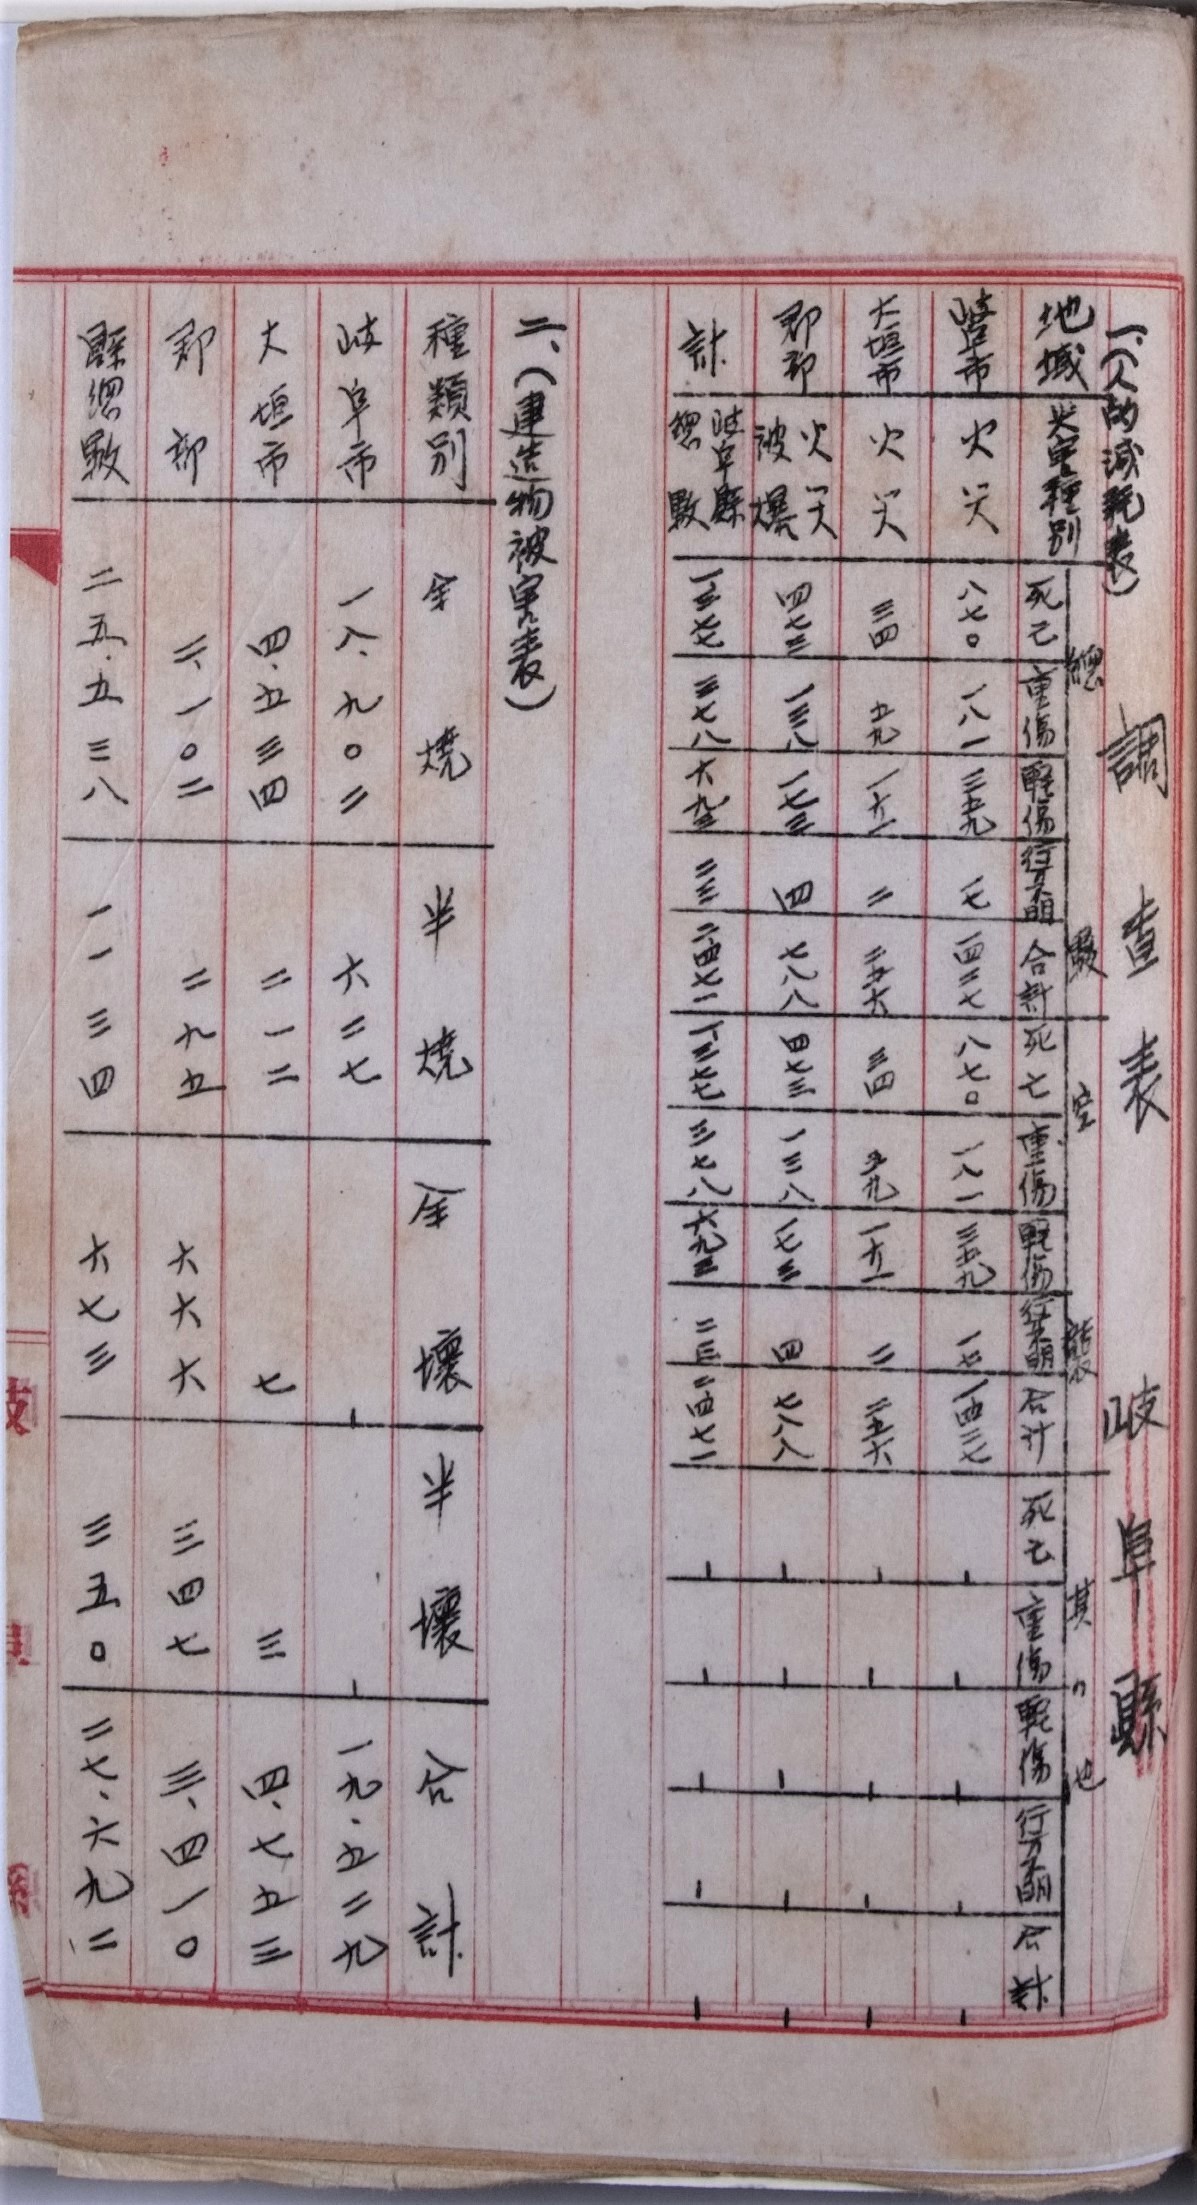 調査表 岐阜縣
一、(人的減耗表)
總數 空襲 其ノ他
地域 災害種別 死亡 重傷 輕傷 行方不明 合計 死亡 重傷 輕傷 行方不明 合計 死亡 重傷 輕傷 行方不明 合計
岐阜市 火災 八七〇 一八一 三五九 一七 一四二七 八七〇 一八一 三五九 一七 一四二七 ー ー ー ー ー
大垣市 火災 三四 五九 一六一 二 二五六 三四 五九 一六一 二 二五六 ー ー ー ー ー
郡部 火災 被爆 四七三 一三八 一七三 四 七八八 四七三 一三八 一七三 四 七八八 ー ー ー ー ー
計 岐阜縣 總數 一、三七七 三七八 六九三 二三 二、四七一 一、三七七 三七八 六九三 二三 二四七一 ー ー ー ー ー
二、(建造物被害表)
種類別 全燒 半燒 全壞 半壞 合計
岐阜市 一八、九〇二 六二七 ー ー 一九、五二九
大垣市 四、五三四 二一二 七 三 四、七五三
郡部 二、一〇二 二九五 六六六 三四七 三、四一〇
縣總數 二五、五三八 一一三四 六七三 三五〇 二七、六九二
岐阜縣